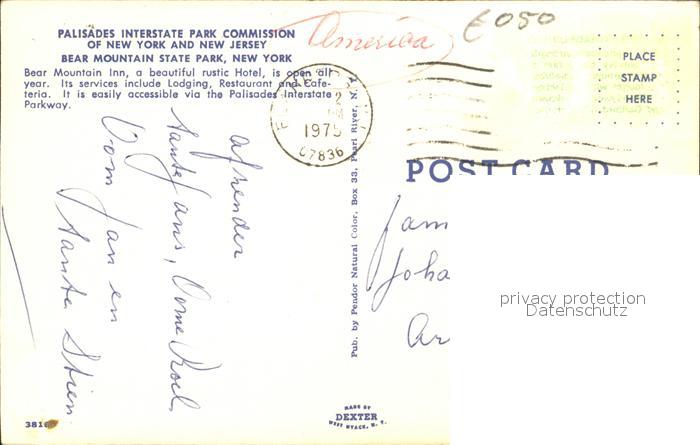 PALISADES INTERSTATE PARK COMMISSION
OF NEW YORK AND NEW JERSEY
BEAR MOUNTAIN STATE PARK, NEW YORK
Bear Mountain Inn, a beautiful rustic Hotel, is open all
year. Its services include Lodging, Restaurant and Cafe-
teria. It is easily accessible via the Palisades Interstate
Parkway.
America
€050
PLACE
STAMP
HERE
2
PM
1975
07836
POST CARD
afzender
tante Jans, Oome Roel,
Oom Jan en
tante Stien
Pub. by Pendor Natural Color, Box 33, Pearl River, N. Y.
Jam
Joha
Ar
privacy protection
Datenschutz
MADE BY
DEXTER
WEST NYACK, N. Y.
3816